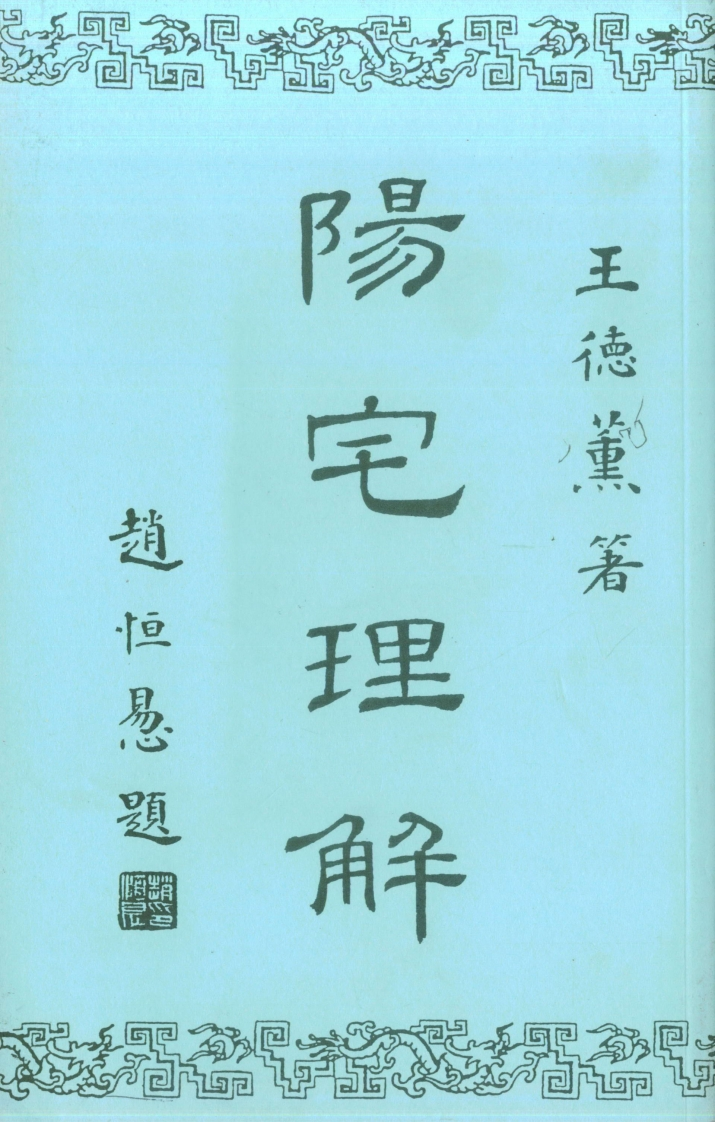 王德薰著
陽宅理解
趙恒惖題